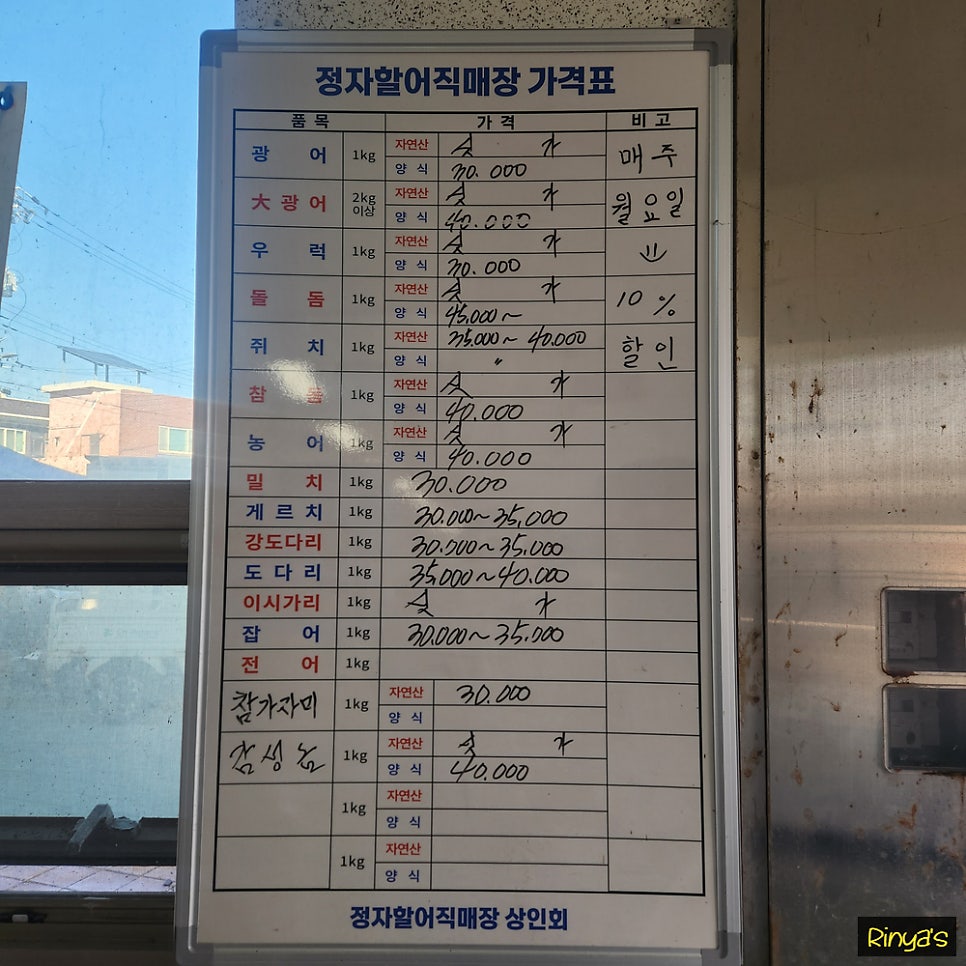 정자할어직매장 가격표
품목 가격 비고
광어 1kg 자연산 싯가 매주
양식 30.000
大광어 2kg 이상 자연산 싯가 월요일
양식 40.000
우럭 1kg 자연산 싯가
양식 30.000
돌돔 1kg 자연산 싯가 10%
양식 45.000~
쥐치 1kg 자연산 35.000~40.000 할인
양식 〃
참돔 1kg 자연산 싯가
양식 40.000
농어 1kg 자연산 싯가
양식 40.000
밀치 1kg 30.000
게르치 1kg 30.000~35,000
강도다리 1kg 30.000~35.000
도다리 1kg 35.000~40.000
이시가리 1kg 싯가
잡어 1kg 30.000~35.000
전어 1kg
참가자미 1kg 자연산 30.000
양식
감성돔 1kg 자연산 싯가
양식 40.000
1kg 자연산
양식
1kg 자연산
양식
정자할어직매장 상인회
Rinya's